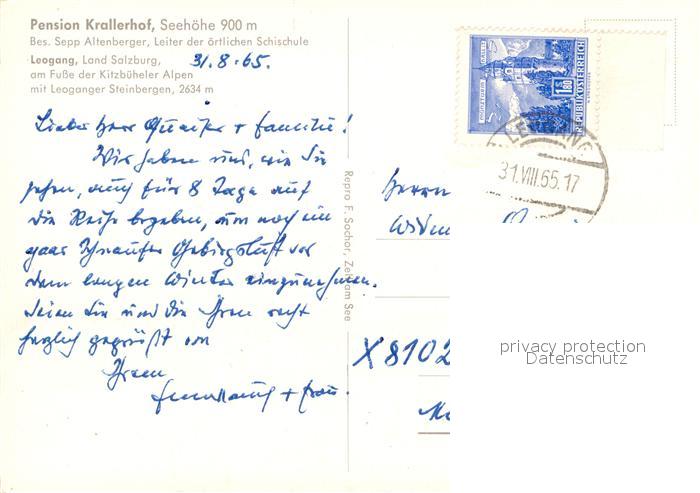 Pension Krallerhof, Seehöhe 900 m
Bes. Sepp Altenberger, Leiter der örtlichen Schischule
Leogang, Land Salzburg,
am Fuße der Kitzbüheler Alpen
mit Leoganger Steinbergen, 2634 m
31.8.65.
Lieber Herr + Familie!
Wir haben uns, wie Sie
sehen, auch für 8 Tage auf
die Reise begeben, um noch ein
paar Schnaufer Gebirgsluft vor
dem langen Winter einzunehmen.
Seien Sie und die Ihren recht
herzlich gegrüßt von
Ihrem
+ Frau.
Repro F. Sochor, Zell am See
REPUBLIK ÖSTERREICH
S 1.80
LEOGANG
31.VIII.65.17
Herrn
X 8102
privacy protection
Datenschutz